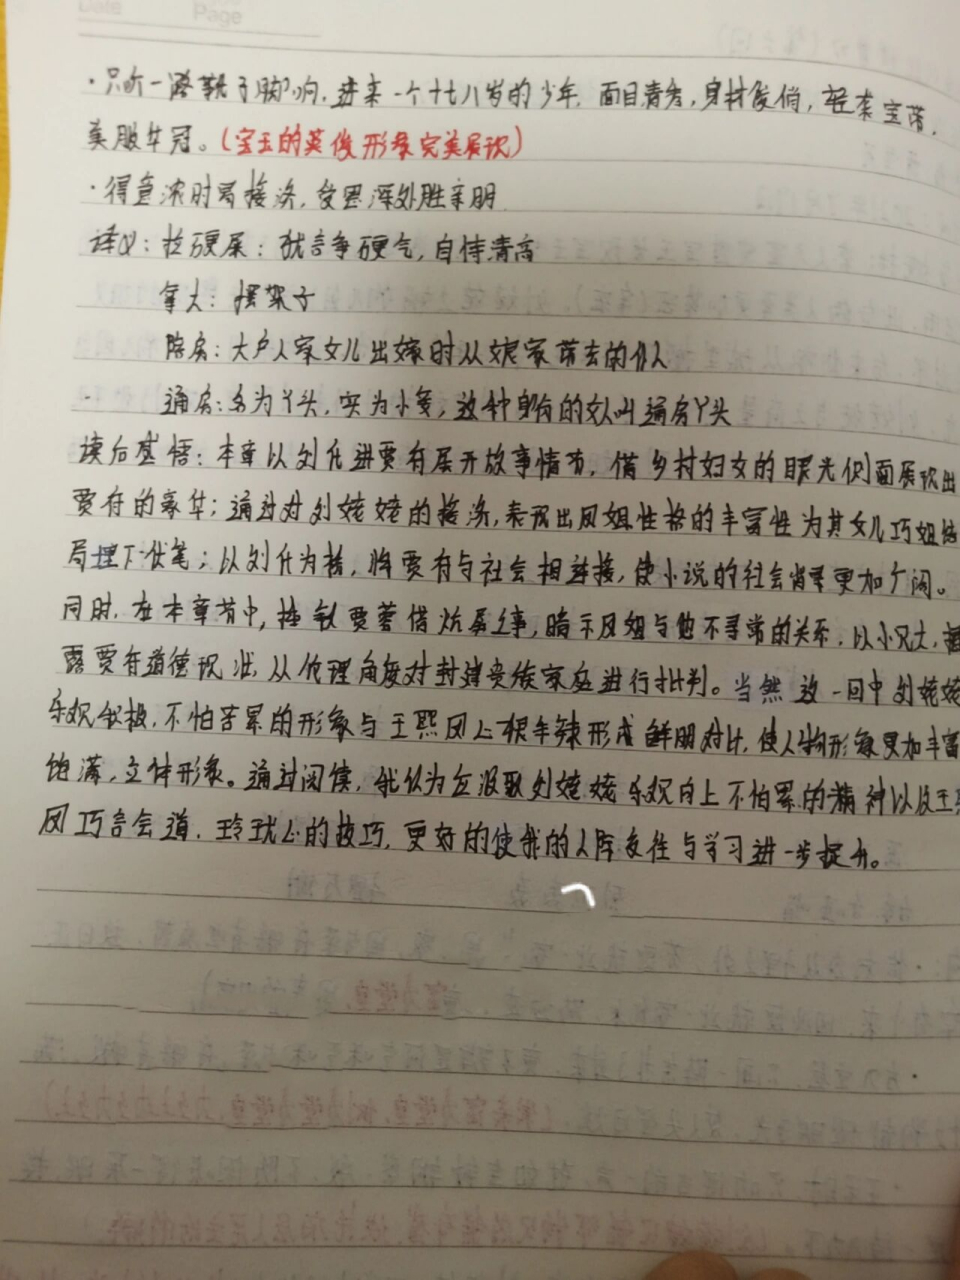 Date Page
·只听一路靴子脚响,进来一个十七八岁的少年,面目清秀,身材俊俏,轻裘宝带,
美服华冠。(宝玉的英俊形象完美展现)
·得意浓时易接济,受恩深处胜亲朋
译义:拉硬屎:犹言争硬气,自恃清高
拿大:摆架子
陪房:大户人家女儿出嫁时从娘家带去的仆人
通房:名为丫头,实为小妾,这种身份的女人叫通房丫头
读后感悟:本章以刘氏进贾府展开故事情节,借乡村妇女的眼光侧面展现出
贾府的豪华;通过对刘姥姥的接济,表现出凤姐性格的丰富性为其女儿巧姐结
局埋下伏笔;以刘氏为桥,将贾府与社会相连接,使小说的社会背景更加广阔。
同时,在本章节中,插叙贾蓉借炕屏之事,暗示凤姐与他不寻常的关系,以小见大,揭
露贾府道德现状,从伦理角度对封建贵族家庭进行批判。当然这一回中刘姥姥
乐观积极,不怕苦累的形象与王熙凤心狠手辣形成鲜明对比,使人物形象更加丰富
饱满,立体形象。通过阅读,我认为应汲取刘姥姥乐观向上不怕累的精神以及王熙
凤巧言会道,玲珑心的技巧,更好的使我的人际交往与学习进一步提升。